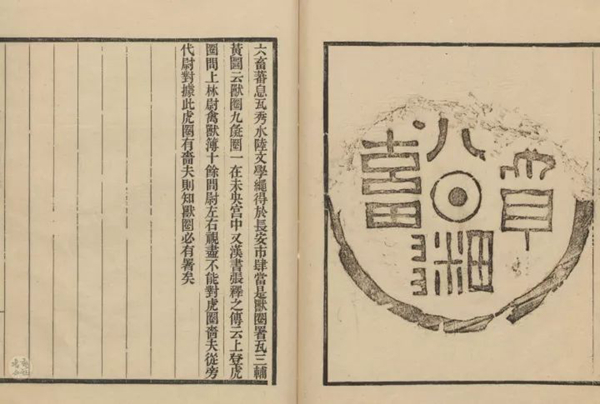 六畜蕃息
六畜蕃息瓦秀水陸文學繩得於長安市肆當是獸圈署瓦三輔
黃圖云獸圈九彘圈一在未央宮中又漢書張釋之傳云上登虎
圈問上林尉禽獸簿十餘問尉左右視盡不能對虎圈嗇夫從旁
代尉對據此虎圈有嗇夫則知獸圈必有署矣